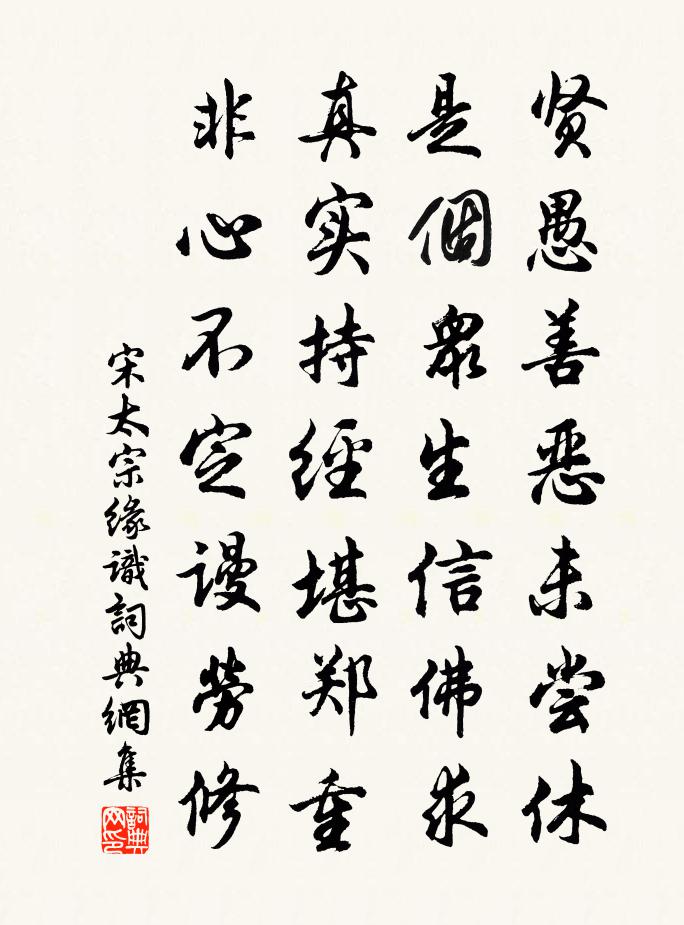 贤愚善恶未尝休
是個衆生信佛求
真实持經堪郑重
非心不定谩勞修
宋太宗缘識詞典網集
詞典网印